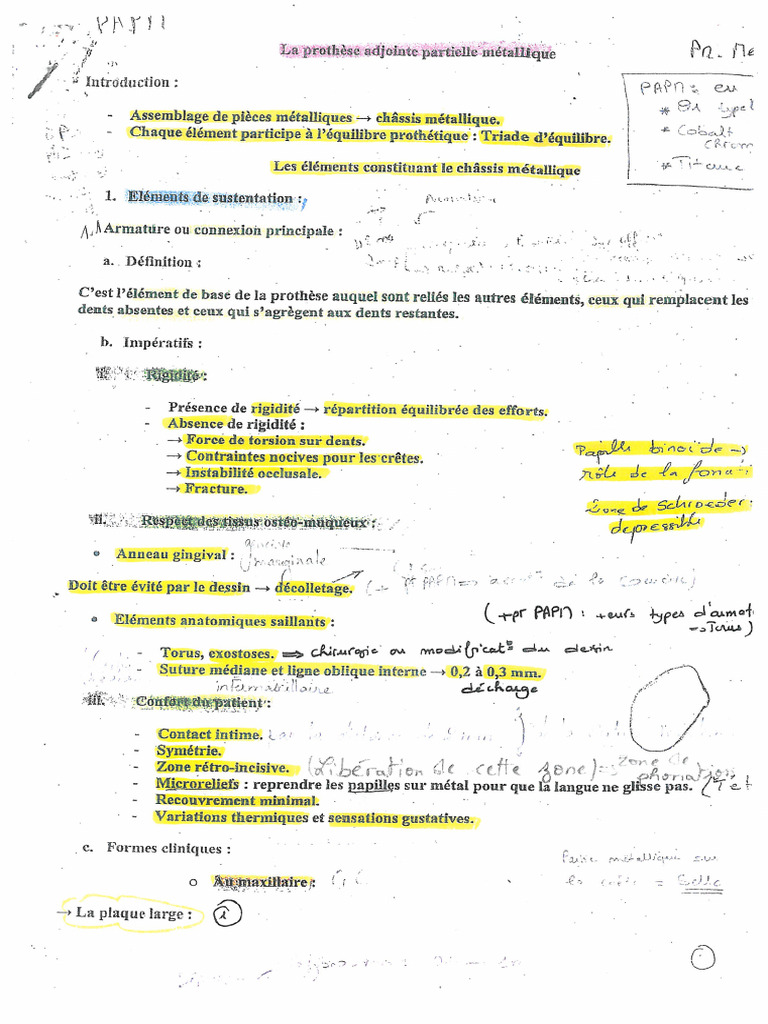 PAPM
La prothèse adjointe partielle métallique
Pr. Me
Introduction :
PAPM : en
* Or type
* Cobalt chrom
* Titane
- Assemblage de pièces métalliques → châssis métallique.
- Chaque élément participe à l'équilibre prothétique : Triade d'équilibre.
Les éléments constituant le châssis métallique
1. Eléments de sustentation :
1.1 Armature ou connexion principale :
a. Définition :
C'est l'élément de base de la prothèse auquel sont reliés les autres éléments, ceux qui remplacent les
dents absentes et ceux qui s'agrègent aux dents restantes.
b. Impératifs :
i. Rigidité :
- Présence de rigidité → répartition équilibrée des efforts.
- Absence de rigidité :
→ Force de torsion sur dents.
→ Contraintes nocives pour les crêtes.
→ Instabilité occlusale.
→ Fracture.
Papille binoïde →
rôle de la fonati
Zone de Schroeder :
depressible
ii. Respect des tissus ostéo-muqueux :
• Anneau gingival :
gencive
marginale
Doit être évité par le dessin → décolletage.
• Eléments anatomiques saillants :
(+pr PAPM : +eurs types d'armat
→ Torus)
- Torus, exostoses. ⇒ chirurgie ou modificat° du dessin
- Suture médiane et ligne oblique interne → 0,2 à 0,3 mm.
intermaxillaire
décharge
iii. Confort du patient :
- Contact intime.
- Symétrie.
- Zone rétro-incisive. (Libération de cette zone) = zone de phonation
- Microreliefs : reprendre les papilles sur métal pour que la langue ne glisse pas.
- Recouvrement minimal.
- Variations thermiques et sensations gustatives.
c. Formes cliniques :
métallique sur
la crête = Selle
o Au maxillaire :
→ La plaque large : i